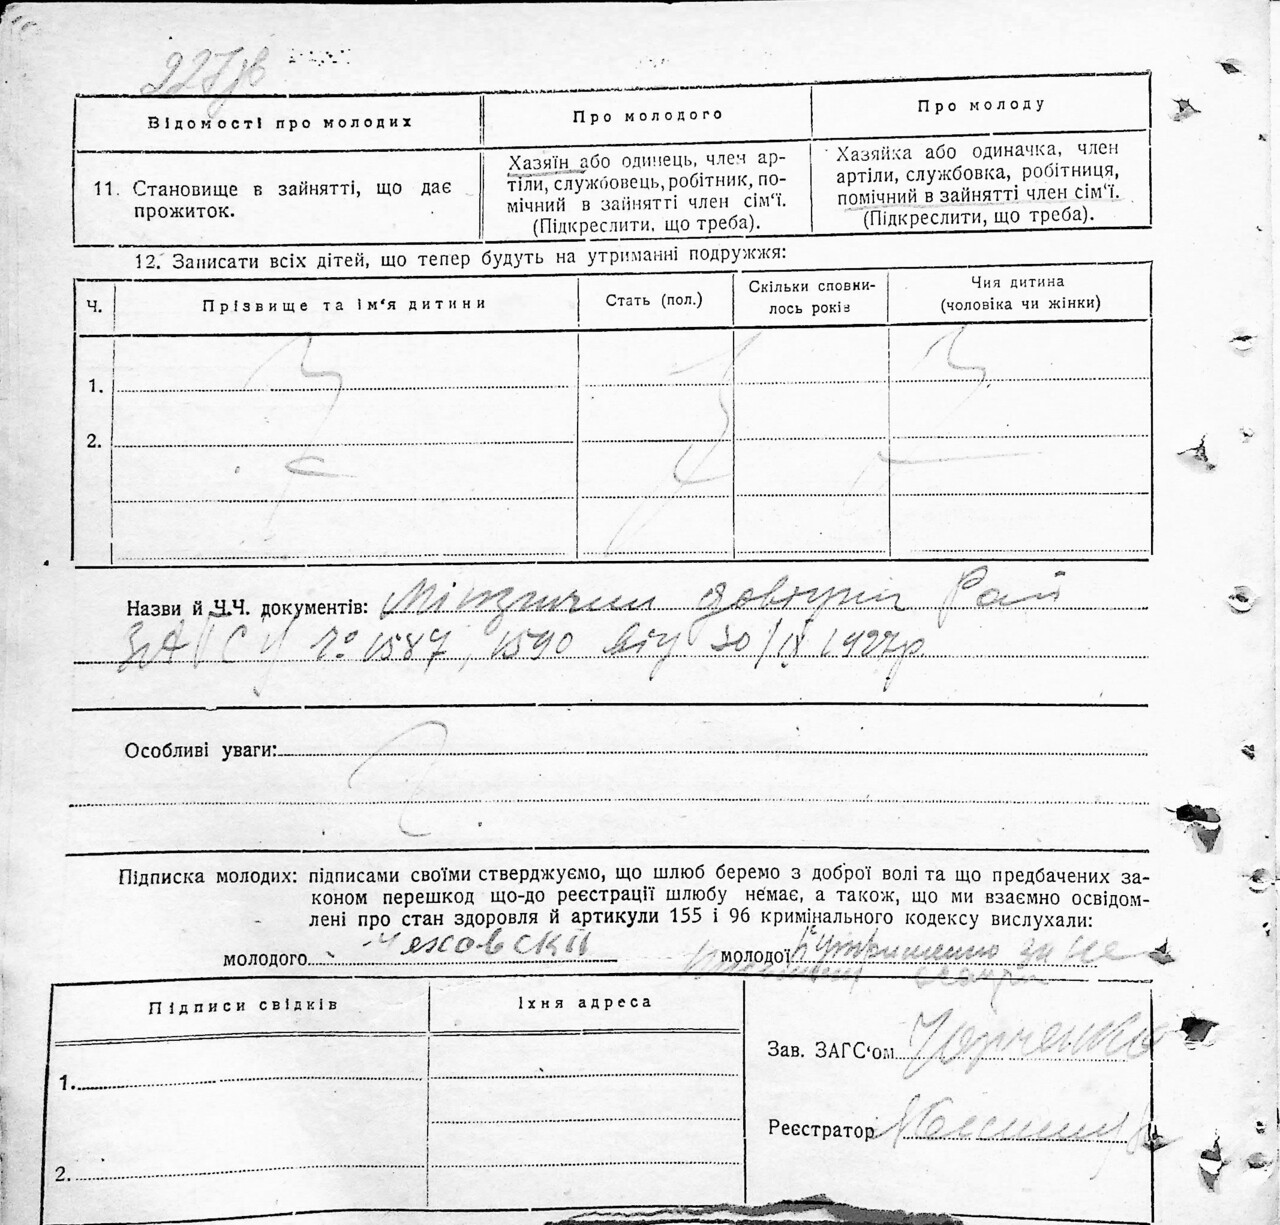 227зв
Відомості про молодих
Про молодого
Про молоду
11. Становище в зайнятті, що дає прожиток.
Хазяїн або одинець, член ар-
тіли, службовець, робітник, по-
мічний в зайнятті член сім‘ї.
(Підкреслити, що треба).
Хазяйка або одиначка, член
артіли, службовка, робітниця,
помічний в зайнятті член сім‘ї.
(Підкреслити, що треба).
12. Записати всіх дітей, що тепер будуть на утриманні подружжя:
Ч.
Прізвище та ім‘я дитини
Стать (пол.)
Скільки сповни-
лось років
Чия дитина
(чоловіка чи жінки)
1.
2.
Назви й Ч.Ч. документів: довідки Рай
ЗАГСУ № 1587, 1590 від 30/IX 1927р
Особливі уваги:
Підписка молодих: підписами своїми стверджуємо, що шлюб беремо з доброї волі та що предбачених за-
коном перешкод що-до реєстрації шлюбу немає, а також, що ми взаємно освідом-
лені про стан здоровля й артикули 155 і 96 кримінального кодексу вислухали:
молодого Чеховский молодої за не
Підписи свідків
Їхня адреса
1.
2.
Зав. ЗАГС‘ом Юрченко
Реєстратор